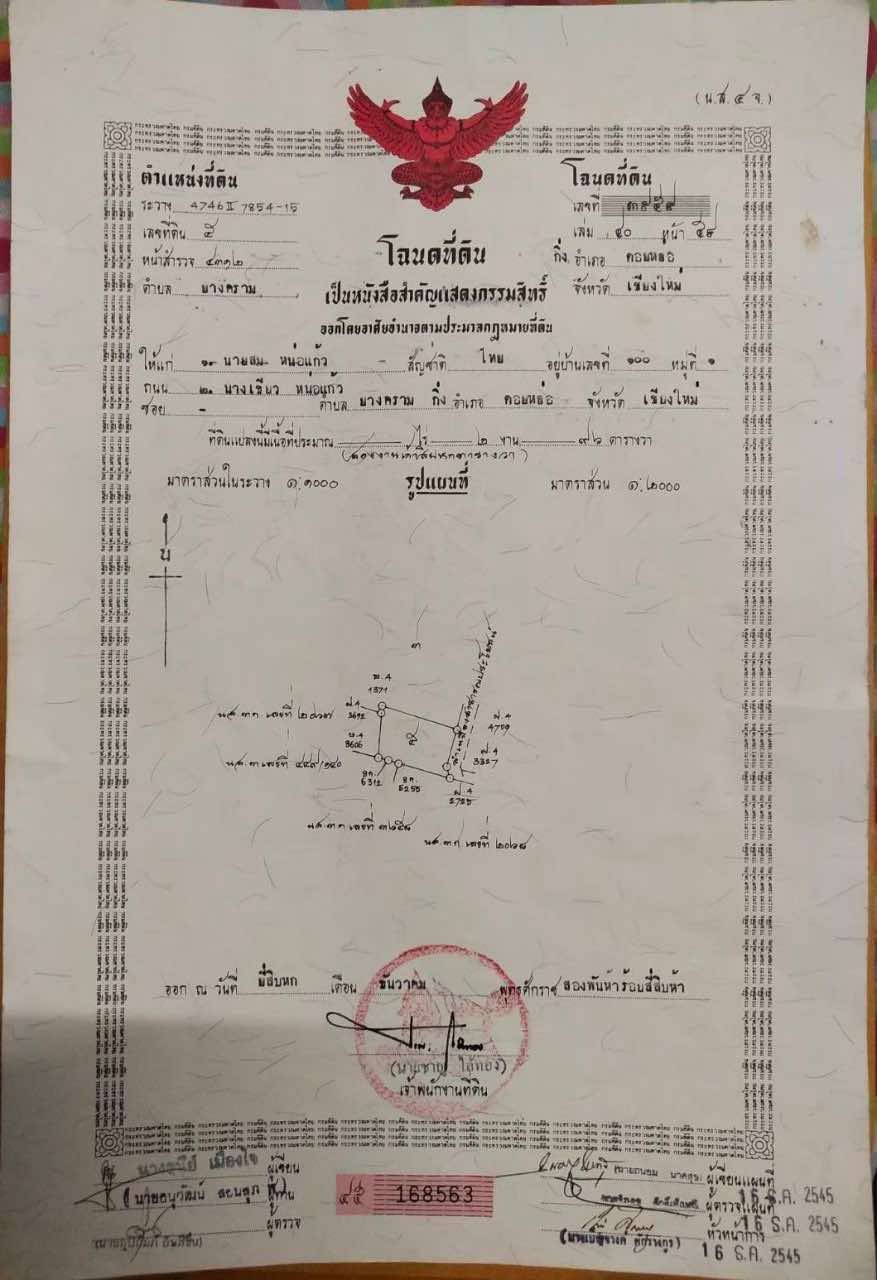 (น.ส. ๔ จ.)
ตำแหน่งที่ดิน
ระวาง 4746 II 7854-15
เลขที่ดิน ๕
หน้าสำรวจ ๔๓๑๒
ตำบล ยางคราม
โฉนดที่ดิน
เลขที่ ๓๙๕๙
เล่ม ๔๐ หน้า ๕๙
กิ่ง อำเภอ ดอยหล่อ
จังหวัด เชียงใหม่
โฉนดที่ดิน
เป็นหนังสือสำคัญแสดงกรรมสิทธิ์
ออกโดยอาศัยอำนาจตามประมวลกฎหมายที่ดิน
ให้แก่ ๑. นายสม หน่อแก้ว - สัญชาติ ไทย อยู่บ้านเลขที่ ๑๐๐ หมู่ที่ ๑
ถนน ๒. นางเขียว หน่อแก้ว
ซอย - ตำบล ยางคราม กิ่ง อำเภอ ดอยหล่อ จังหวัด เชียงใหม่
ที่ดินแปลงนี้มีเนื้อที่ประมาณ - ไร่ ๒ งาน ๙๖ ตารางวา
(สองงานเก้าสิบหกตารางวา)
มาตราส่วนในระวาง ๑:๑๐๐๐ รูปแผนที่ มาตราส่วน ๑:๒๐๐๐
น
๓
พ.4
1371
ฬ.4
3692
น.ส. ๓ ก. เลขที่ ๒๘๖๗
๕
ลำเหมืองสาธารณประโยชน์
ฬ.4
4709
3606
น.ส. ๓ เลขที่ ๔๔๙/๑๔๐
ฬ.4
3327
ฮค.
6312
ฮค.
5255
ฬ.4
2725
น.ส. ๓ ก. เลขที่ ๓๖๕๘
น.ส. ๓ ก. เลขที่ ๒๐๖๘
ออก ณ วันที่ ยี่สิบหก เดือน ธันวาคม พุทธศักราช สองพันห้าร้อยสี่สิบห้า
เจ้าพนักงานที่ดิน
ผู้เขียน
นายอนุวัฒน์ ผู้ทาน
ผู้ตรวจ
168563
(นายถนอม นาคสุข) ผู้เขียนแผนที่
ผู้ตรวจแผนที่ 16 ธ.ค. 2545
หัวหน้าการ 16 ธ.ค. 2545
16 ธ.ค. 2545